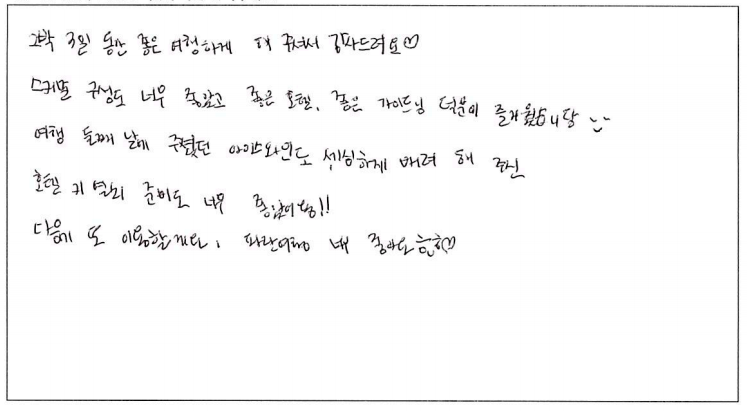 2박 3일 동안 좋은 여행하게 해 주셔서 감사드려요♡
스케줄 구성도 너무 좋았고 좋은 호텔, 좋은 가이드님 덕분에 즐거웠습니당
여행 둘째 날에 주셨던 아이스와인도 센싱하게 배려 해 주신
호텔 키 준비도 너무 좋았어용!!
다음에 또 이용할게요, 파란여행 넘 좋아요 ♡